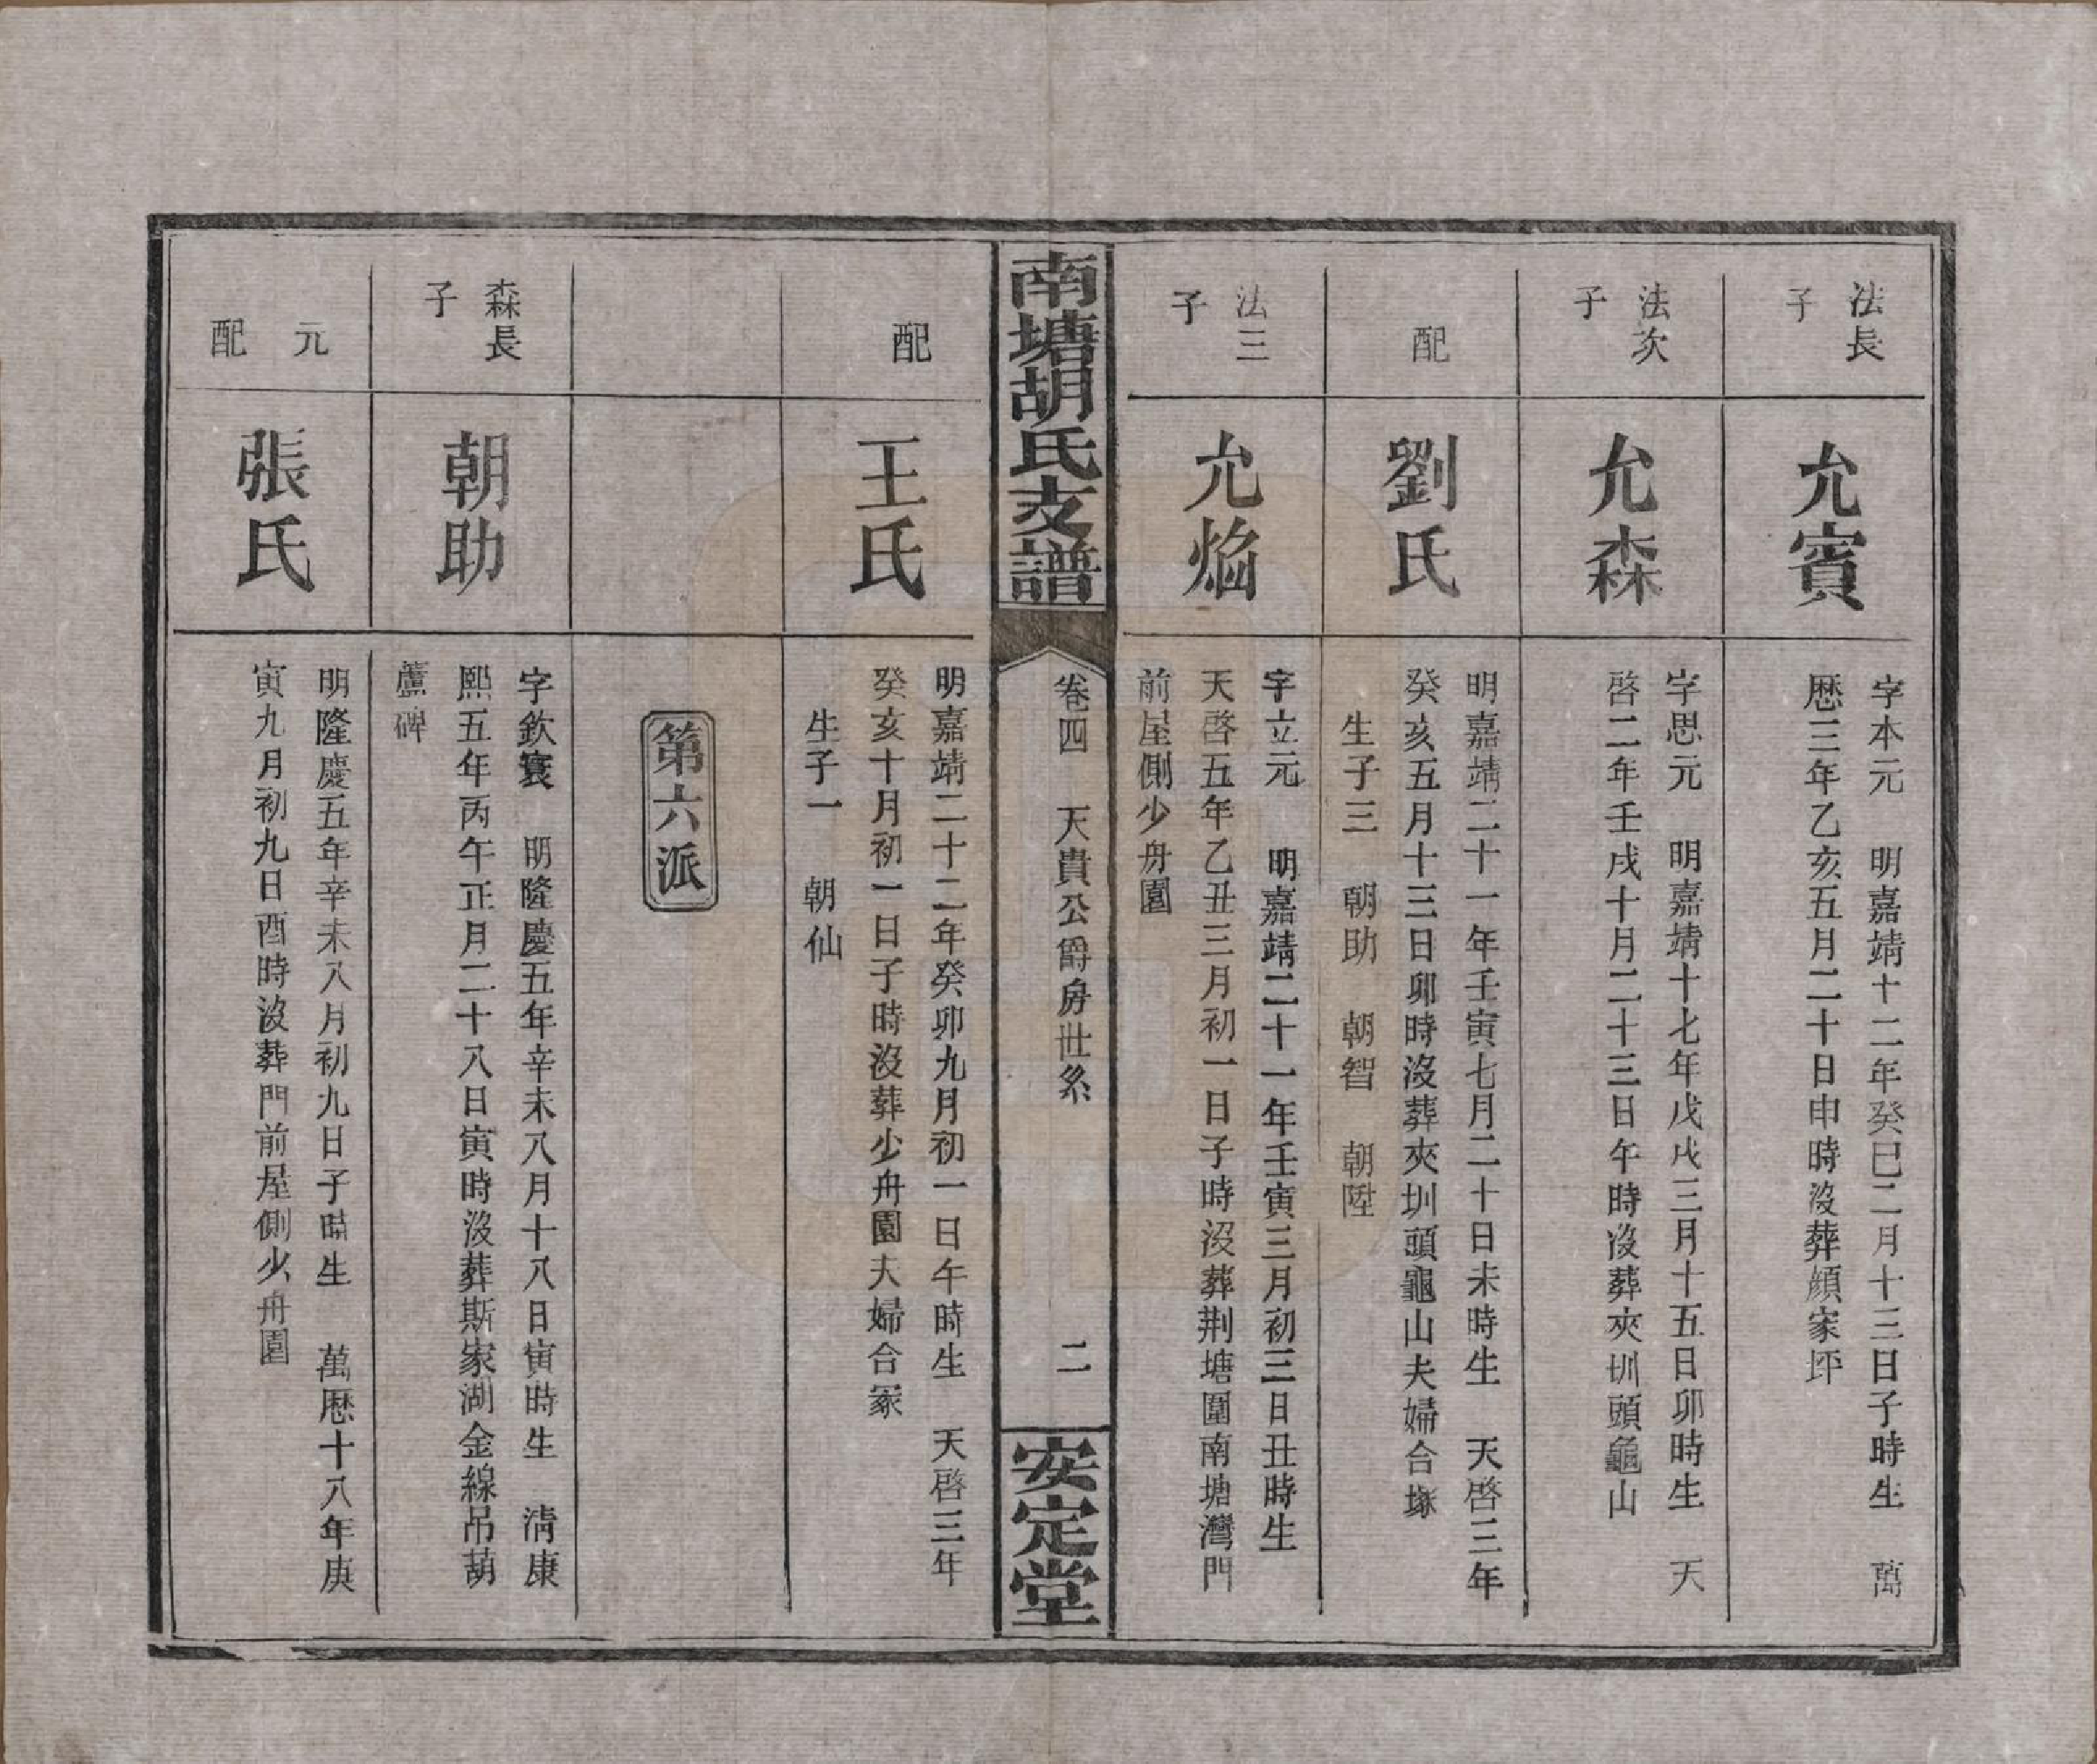 法長
子
允賓
字本元　明嘉靖十二年癸巳二月十三日子時生　萬
歷三年乙亥五月二十日申時沒葬顏家坪
法次
子
允森
字思元　明嘉靖十七年戊戌三月十五日卯時生　天
啓二年壬戌十月二十三日午時沒葬夾圳頭龜山
配
劉氏
明嘉靖二十一年壬寅七月二十日未時生　天啓三年
癸亥五月十三日卯時沒葬夾圳頭龜山夫婦合塚
生子三　朝助　朝智　朝陞
法三
子
允焰
字立元　明嘉靖二十一年壬寅三月初三日丑時生
天啓五年乙丑三月初一日子時沒葬荆塘圍南塘灣門
前屋側少舟園
南塘胡氏支譜
卷四　天貴公爵房世系
二
安定堂
配
王氏
明嘉靖二十二年癸卯九月初一日午時生　天啓三年
癸亥十月初一日子時沒葬少舟園夫婦合冢
生子一　朝仙
第六派
森長
子
朝助
字欽寰　明隆慶五年辛未八月十八日寅時生　清康
熙五年丙午正月二十八日寅時沒葬斯家湖金線吊葫
蘆碑
元
配
張氏
明隆慶五年辛未八月初九日子時生　萬歷十八年庚
寅九月初九日酉時沒葬門前屋側少舟園